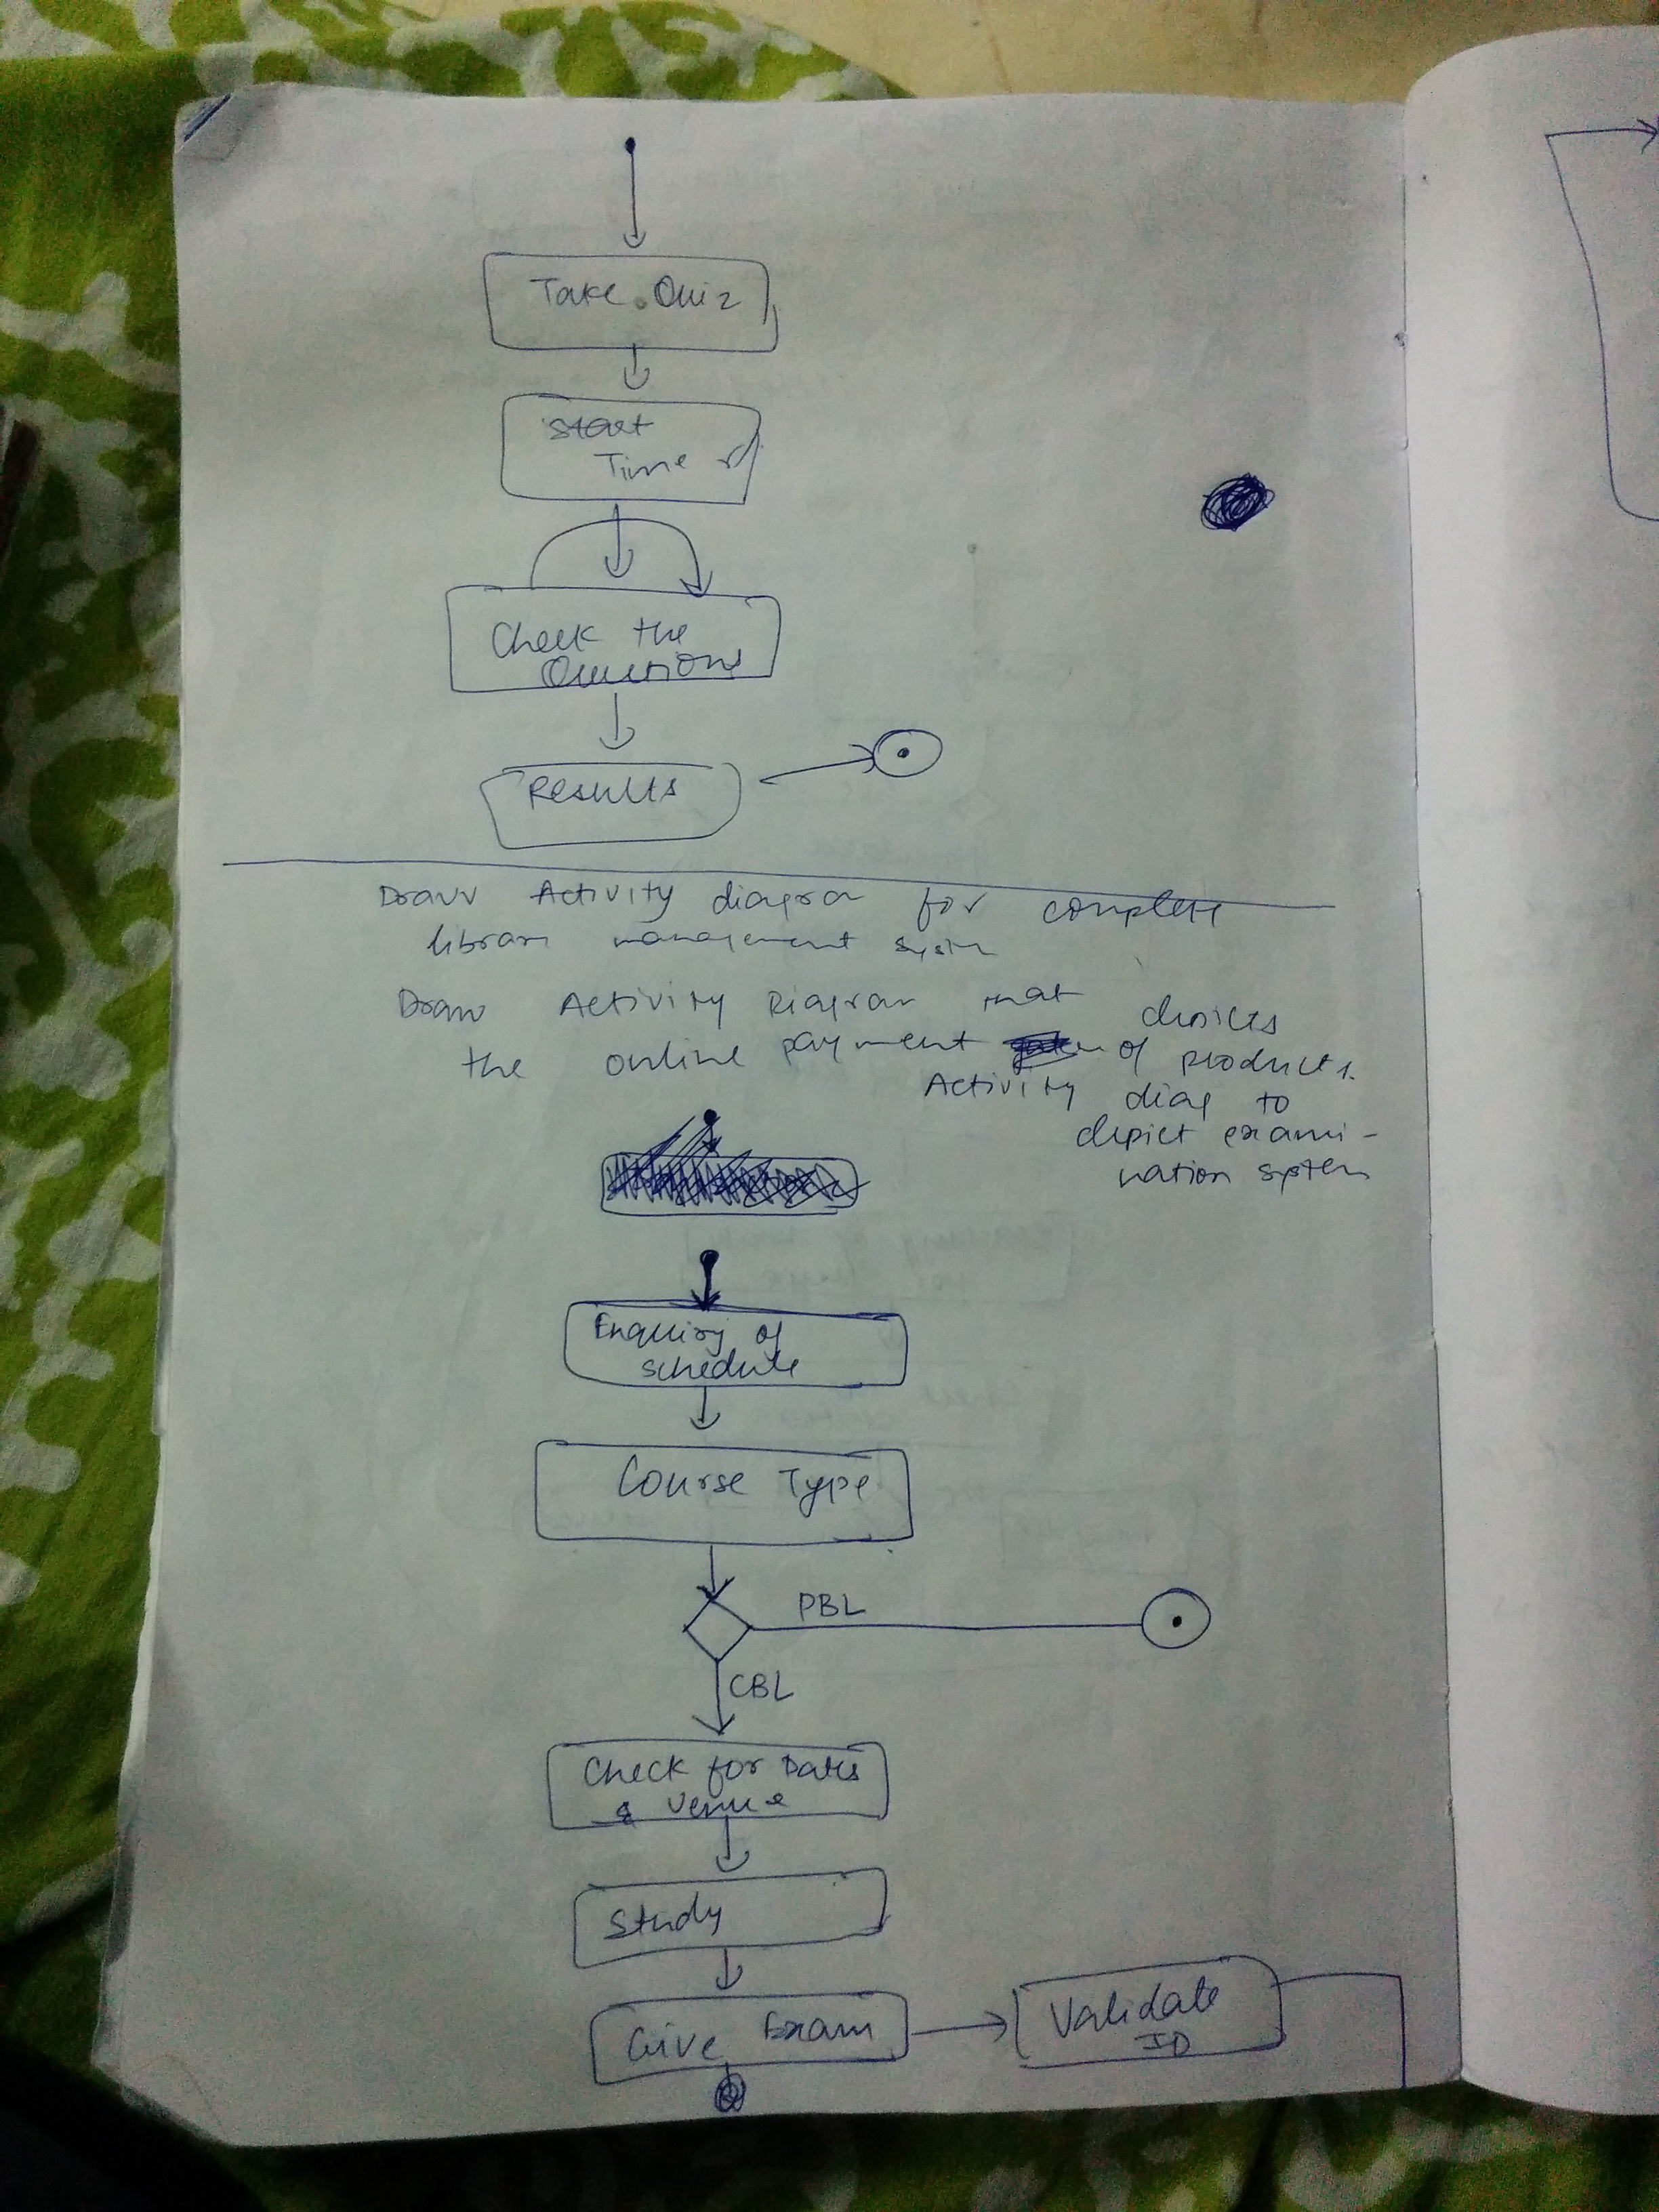 Take Quiz
Start
Timer
Check the
Questions
Results
Draw Activity diagram for complete
library management system
Draw Activity Diagram that
choices
the online payment of products.
Activity diag to
depict exami-
nation system
Enquiry of
schedule
Course Type
PBL
CBL
Check for Dates
& Venue
Study
Give Exam
Validate
ID